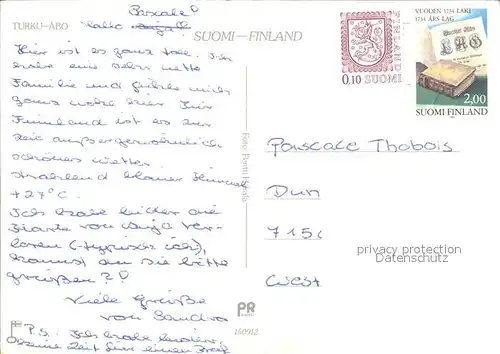 Pascale
TURKU-ÅBO Hallo
SUOMI-FINLAND
Hier ist es ganz toll. Ich
habe eine sehr nette
Familie und fühle mich
ganz wohl hier. Für
Finnland ist es zur
Zeit außergewöhnlich
schönes Wetter.
strahlend blauer Himmel
+27°C.
Ich habe leider die
Karte von Anja ver-
loren (-typisch ich),
kannst du sie bitte
grüßen??
Viele Grüße
von Sandra
P.S.: Ich habe leider
keine Zeit für einen Brief
Foto: Pentti Harala
PR
150912
FINLAND
0,10 SUOMI
VUODEN 1734 LAKI
1734 ÅRS LAG
2,00
SUOMI FINLAND
Thobois
715
privacy protection